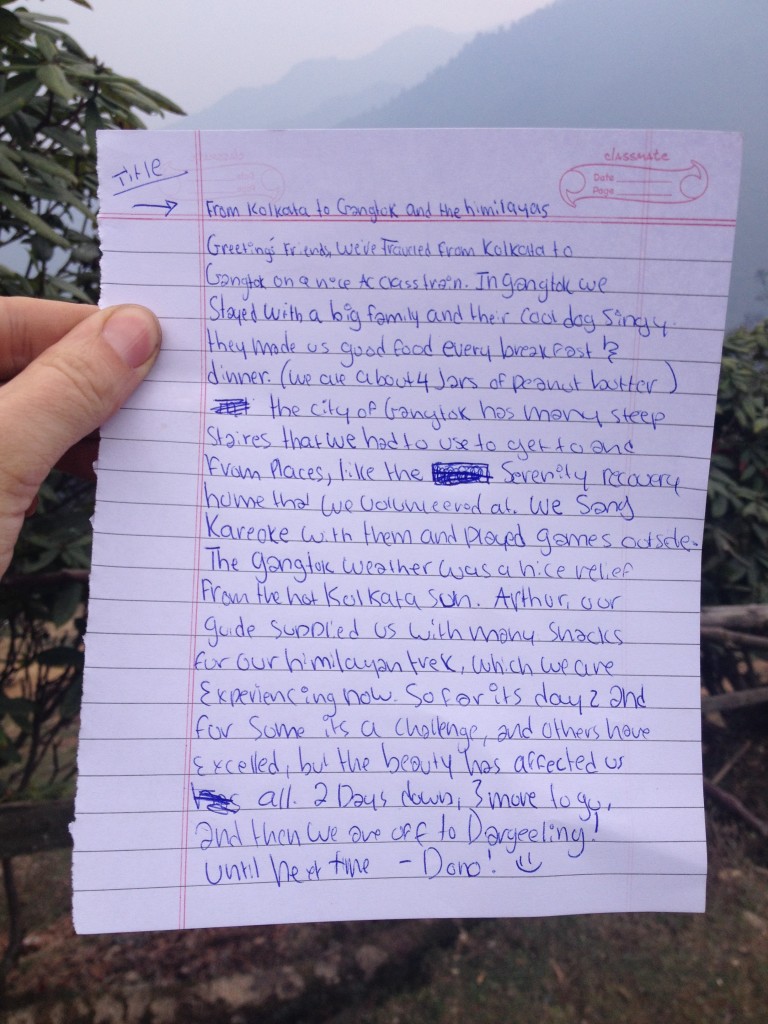 Title
classmate
Date
Page
→ From Kolkata to Gangtok and the himilayas
Greetings Friends, we've Traveled From Kolkata to
Gangtok on a nice AC class train. In gangtok we
Stayed with a big family and their cool dog Singy.
they made us good food every breakfast &
dinner. (we ate about 4 Jars of peanut butter)
the city of Gangtok has many steep
Staires that we had to use to get to and
From Places, like the Serenity recovery
home that we volunteered at. We Sang
Kareoke with them and played games outside.
The gangtok weather was a nice relief
From the hot Kolkata sun. Arthur, our
guide supplied us with many snacks
for our himilayan trek, which we are
Experiencing now. So far its day 2 and
for some its a challenge, and others have
Excelled, but the beauty has affected us
all. 2 Days down, 3 more to go,
and then we are off to Dargeeling!
Until next time - Dano! :)